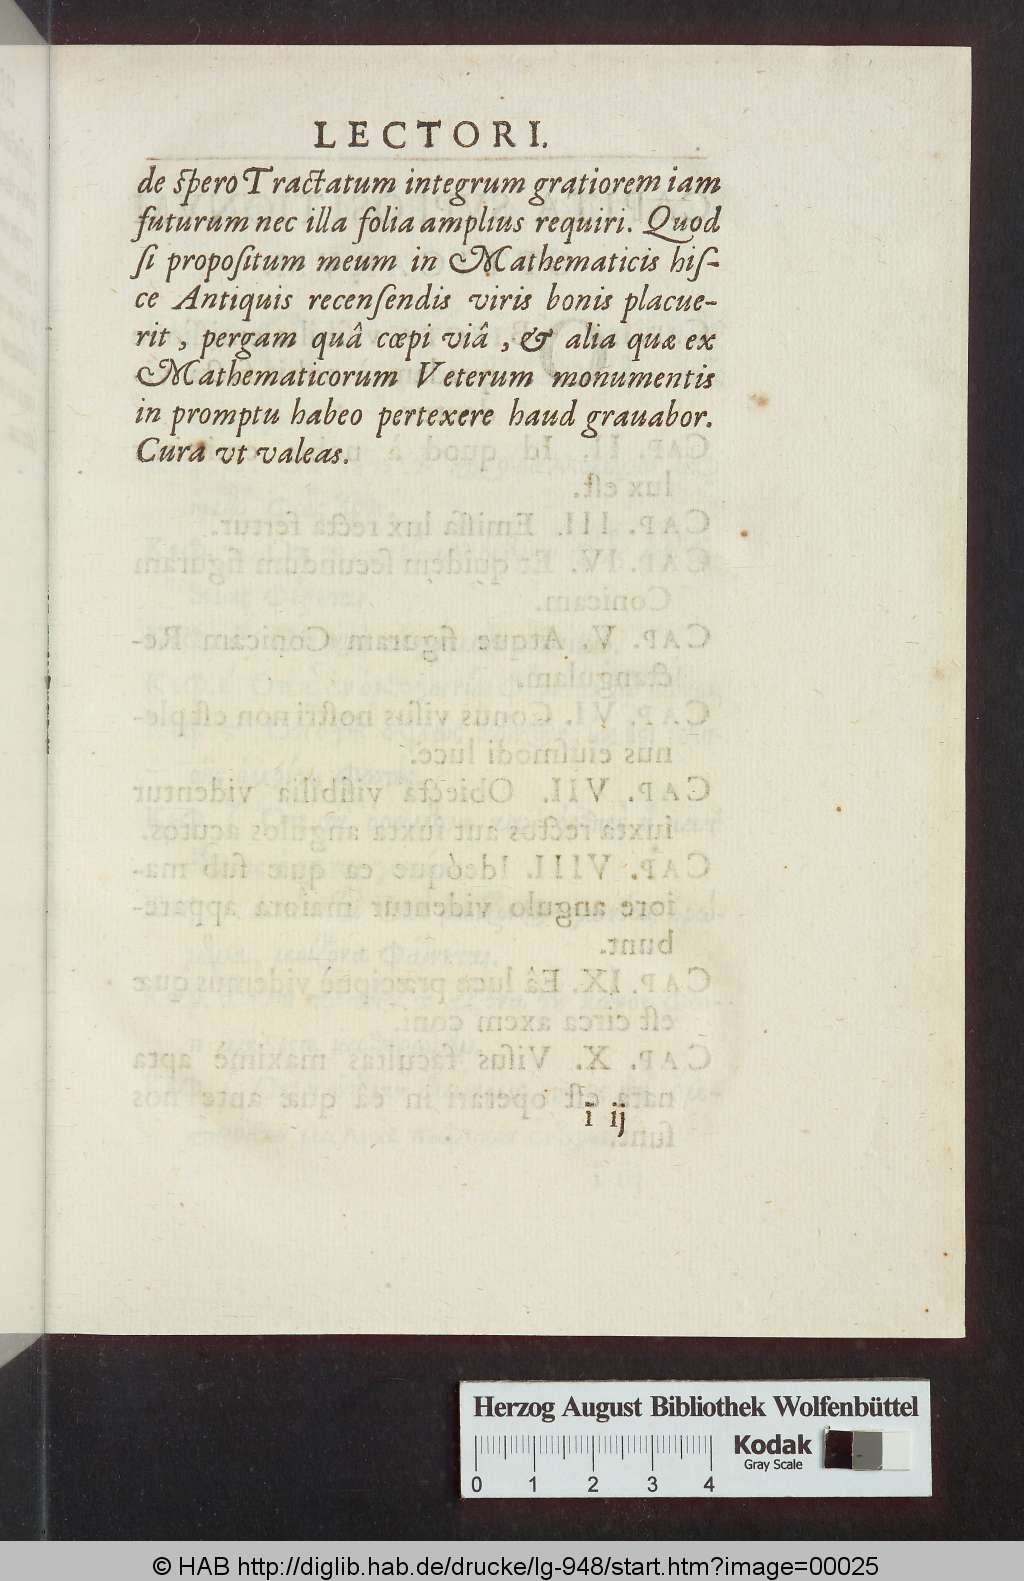 LECTORI.
de ſpero Tractatum integrum gratiorem iam
futurum nec illa folia amplius requiri. Quod
ſi propoſitum meum in Mathematicis hiſ-
ce Antiquis recenſendis viris bonis placue-
rit, pergam quâ cœpi viâ, & alia quæ ex
Mathematicorum Veterum monumentis
in promptu habeo pertexere haud grauabor.
Cura vt valeas.
i ij
Herzog August Bibliothek Wolfenbüttel
Kodak
Gray Scale
0 1 2 3 4
© HAB http://diglib.hab.de/drucke/lg-948/start.htm?image=00025